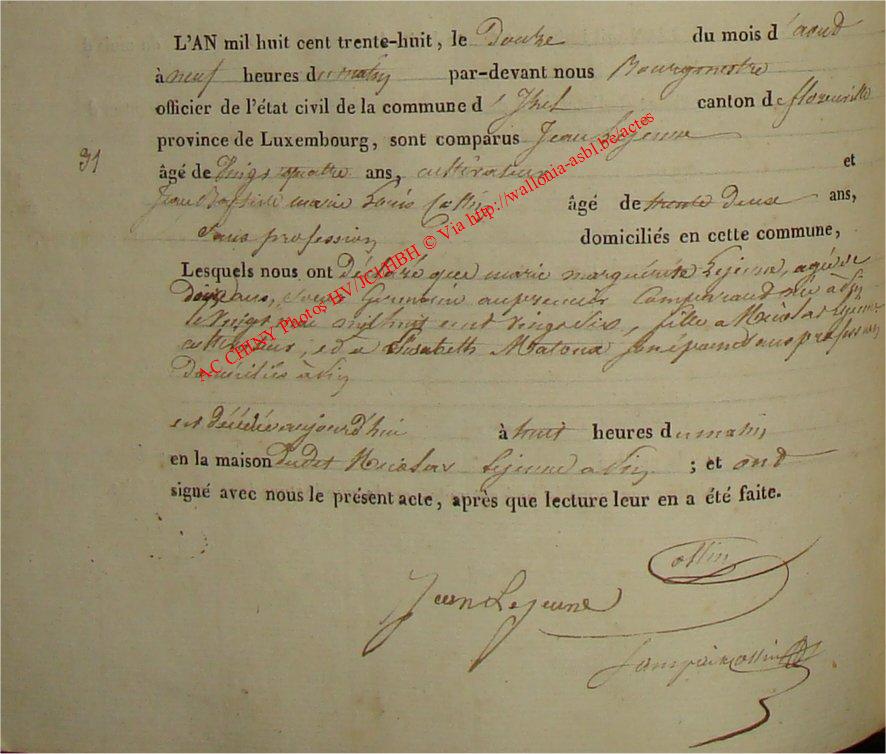 L'AN mil huit cent trente-huit, le Douze du mois d'aoud
à neuf heures du matin par-devant nous Bourgmestre
officier de l'état civil de la commune d' canton de florenville
province de Luxembourg, sont comparus Jean Lejeune
31
âgé de vingt quatre ans, cultivateur et
Jean Baptiste marie Louis Collin âgé de trente deux ans,
sans profession domiciliés en cette commune,
Lesquels nous ont Déclaré que marie marguerite Lejeune, agée de
ans, Soeur Germain au premier Comparand née à
le Vingt mil huit cent vingt six, fille a Nicolas Lejeune
cultivateur, et a Elisabeth son épouse sans profession
Domiciliés à
est décédée aujourd'hui à huit heures du matin
en la maison dudit Nicolas Lejeune a ; et ond
signé avec nous le présent acte, après que lecture leur en a été faite.
Collin
Jean Lejeune
AC CHINY Photos HV/JCL/HBH © Via http://wallonia-asbl.be/actes